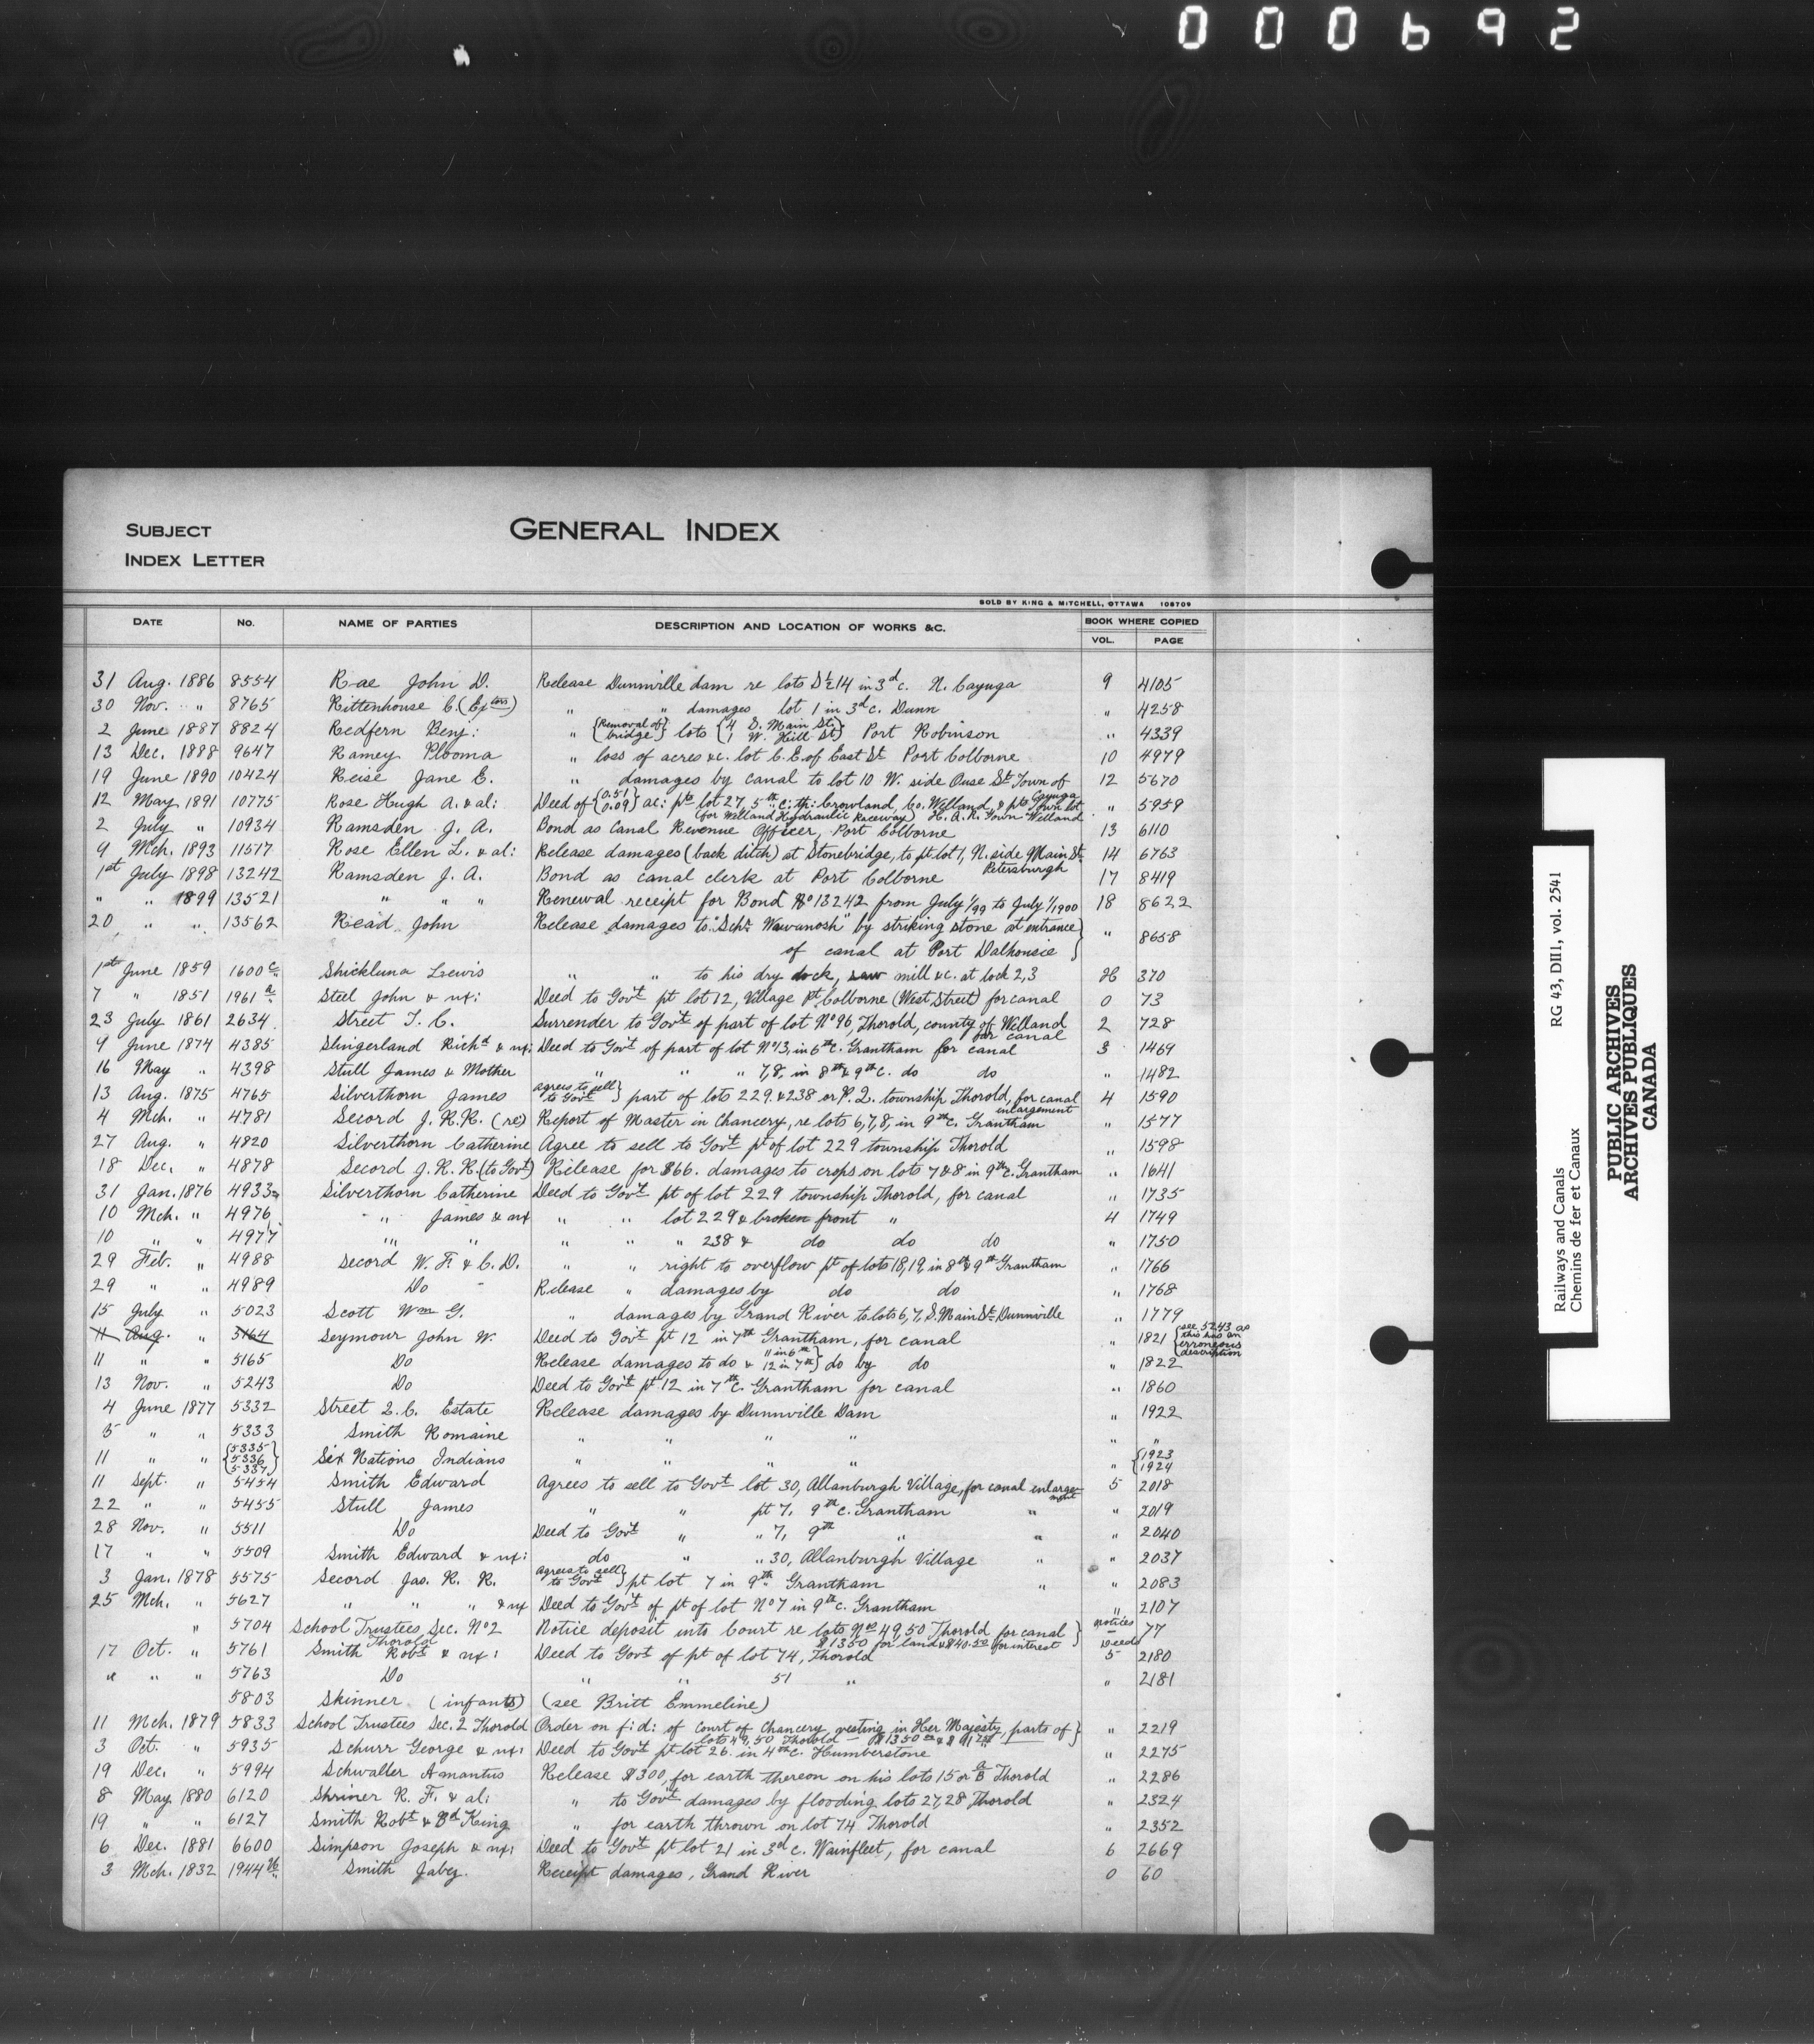 000692
SUBJECT
INDEX LETTER
GENERAL INDEX
SOLD BY KING & MITCHELL, OTTAWA 108709
DATE No. NAME OF PARTIES DESCRIPTION AND LOCATION OF WORKS &C. BOOK WHERE COPIED
VOL. PAGE
31 Aug. 1886 8554 Rae John D. Release Dunnville dam re lots S½ 14 in 3d c. N. Cayuga 9 4105
30 Nov. " 8765 Rittenhouse C. (Extors) " " damages lot 1 in 3d c. Dunn " 4258
2 June 1887 8824 Redfern Benj: " {Removal of bridge} lots {4 S. Main St. 1 W. Hill St} Port Robinson " 4339
13 Dec. 1888 9647 Ramey Plooma " loss of acres &c. lot C. E. of East St. Port Colborne 10 4979
19 June 1890 10424 Reise Jane E. " damages by canal to lot 10 W. side Ouse St. Town of Cayuga 12 5670
12 May 1891 10775 Rose Hugh A. & al: Deed of {0.51 0.09} ac: pts lot 27, 5th c: tp: Crowland, Co. Welland, & pts Town lot " 5959
(for Welland Hydraulic Raceway) H. A. R. Town Welland
2 July " 10934 Ramsden J. A. Bond as Canal Revenue Officer, Port Colborne 13 6110
9 Mch. 1893 11517 Rose Ellen L. & al: Release damages (back ditch) at Stonebridge, to pt lot 1, N. side Main St. Petersburgh 14 6763
1st July 1898 13242 Ramsden J. A. Bond as canal clerk at Port Colborne 17 8419
" " 1899 13521 " " " Renewal receipt for Bond No 13242 from July 1/99 to July 1/1900 18 8622
20 " " 13562 Read John Release damages to "Schr Wawanosh" by striking stone at entrance }
of canal at Port Dalhousie } " 8658
1st June 1859 1600 c Shickluna Lewis " " to his dry dock, saw mill &c. at lock 2,3 26 370
7 " 1851 1961 a Steel John & ux: Deed to Govt pt lot 12, Village Pt. Colborne (West Street) for canal 0 73
23 July 1861 2634 Street T. C. Surrender to Govt of part of lot No 96, Thorold, county of Welland for canal 2 728
9 June 1874 4385 Slingerland Richd & ux: Deed to Govt of part of lot No 13, in 6th c. Grantham for canal 3 1469
16 May " 4398 Stull James & Mother " " " 7,8, in 8th & 9th c. do do " 1482
13 Aug. 1875 4765 Silverthorn James agrees to sell to Govt } part of lots 229 & 238 or P. 2. township Thorold, for canal enlargement 4 1590
4 Mch. " 4781 Secord J. R. K. (re) Report of Master in Chancery, re lots 6,7,8, in 9th c. Grantham " 1577
27 Aug. " 4820 Silverthorn Catherine Agree to sell to Govt pt of lot 229 township Thorold " 1598
18 Dec. " 4878 Secord J. R. K. (to Govt) Release for $66. damages to crops on lots 7 & 8 in 9th c. Grantham " 1641
31 Jan. 1876 4933a Silverthorn Catherine Deed to Govt pt of lot 229 township Thorold, for canal " 1735
10 Mch. " 4976 " James & ux " " lot 229 & broken front " 4 1749
10 " " 4977 " " " " " 238 & do do do " 1750
29 Feb. " 4988 Secord W. F. & C. D. " " right to overflow pt of lots 18,19, in 8th & 9th Grantham " 1766
29 " " 4989 Do Release " damages by do do " 1768
15 July " 5023 Scott Wm G. " damages by Grand River to lots 6,7, S. Main St. Dunnville " 1779
11 Aug. " 5164 Seymour John W. Deed to Govt pt 12 in 7th Grantham, for canal " 1821 {see 5243 as this has an erroneous description
11 " " 5165 Do Release damages to do & 11 in 6th 12 in 7th } do by do " 1822
13 Nov. " 5243 Do Deed to Govt pt 12 in 7th c. Grantham for canal " 1860
4 June 1877 5332 Street T. C. Estate Release damages by Dunnville Dam " 1922
5 " " 5333 Smith Romaine " " " " " "
11 " " {5335 5336 5337} Six Nations Indians " " " " " {1923 1924
11 Sept. " 5454 Smith Edward Agrees to sell to Govt lot 30, Allanburgh Village, for canal enlargement 5 2018
22 " " 5455 Stull James " " pt 7, 9th c. Grantham " " 2019
28 Nov. " 5511 Do Deed to Govt " " 7, 9th " " " 2040
17 " " 5509 Smith Edward & ux: do " " 30, Allanburgh Village " " 2037
3 Jan. 1878 5575 Secord Jas. R. K. agrees to sell to Govt } pt lot 7 in 9th Grantham " " 2083
25 Mch. " 5627 " " " & ux Deed to Govt of pt of lot No 7 in 9th c. Grantham " 2107
" 5704 School Trustees, Sec. No 2 Thorold Notice deposit into Court re lots Nos 49, 50 Thorold for canal } notices 77
$1350 for land & $40.50 for interest
17 Oct. " 5761 Smith Robt & ux: Deed to Govt of pt of lot 74, Thorold Deeds 5 2180
" " " 5763 Do " " 51 " " 2181
5803 Skinner (infants) (see Britt Emmeline)
11 Mch. 1879 5833 School Trustees Sec. 2 Thorold Order on f: d: of Court of Chancery vesting in Her Majesty, parts of } " 2219
lots 49, 50 Thorold
3 Oct. " 5935 Schurr George & ux: Deed to Govt pt lot 26. in 4th c. Humberstone " 2275
19 Dec. " 5994 Schwaller Amantus Release $300, for earth thereon on his lots 15 or B Thorold " 2286
8 May 1880 6120 Shriner R. F. & al: " to Govt damages by flooding lots 27,28 Thorold " 2324
19 " " 6127 Smith Robt & Bd King " for earth thrown on lot 74 Thorold " 2352
6 Dec. 1881 6600 Simpson Joseph & ux: Deed to Govt pt lot 21 in 3d c. Wainfleet, for canal 6 2669
3 Mch. 1832 1944 Smith Jabez. Receipt damages, Grand River 0 60
Railways and Canals RG 43, DIII, vol. 2541
Chemins de fer et Canaux
PUBLIC ARCHIVES
ARCHIVES PUBLIQUES
CANADA